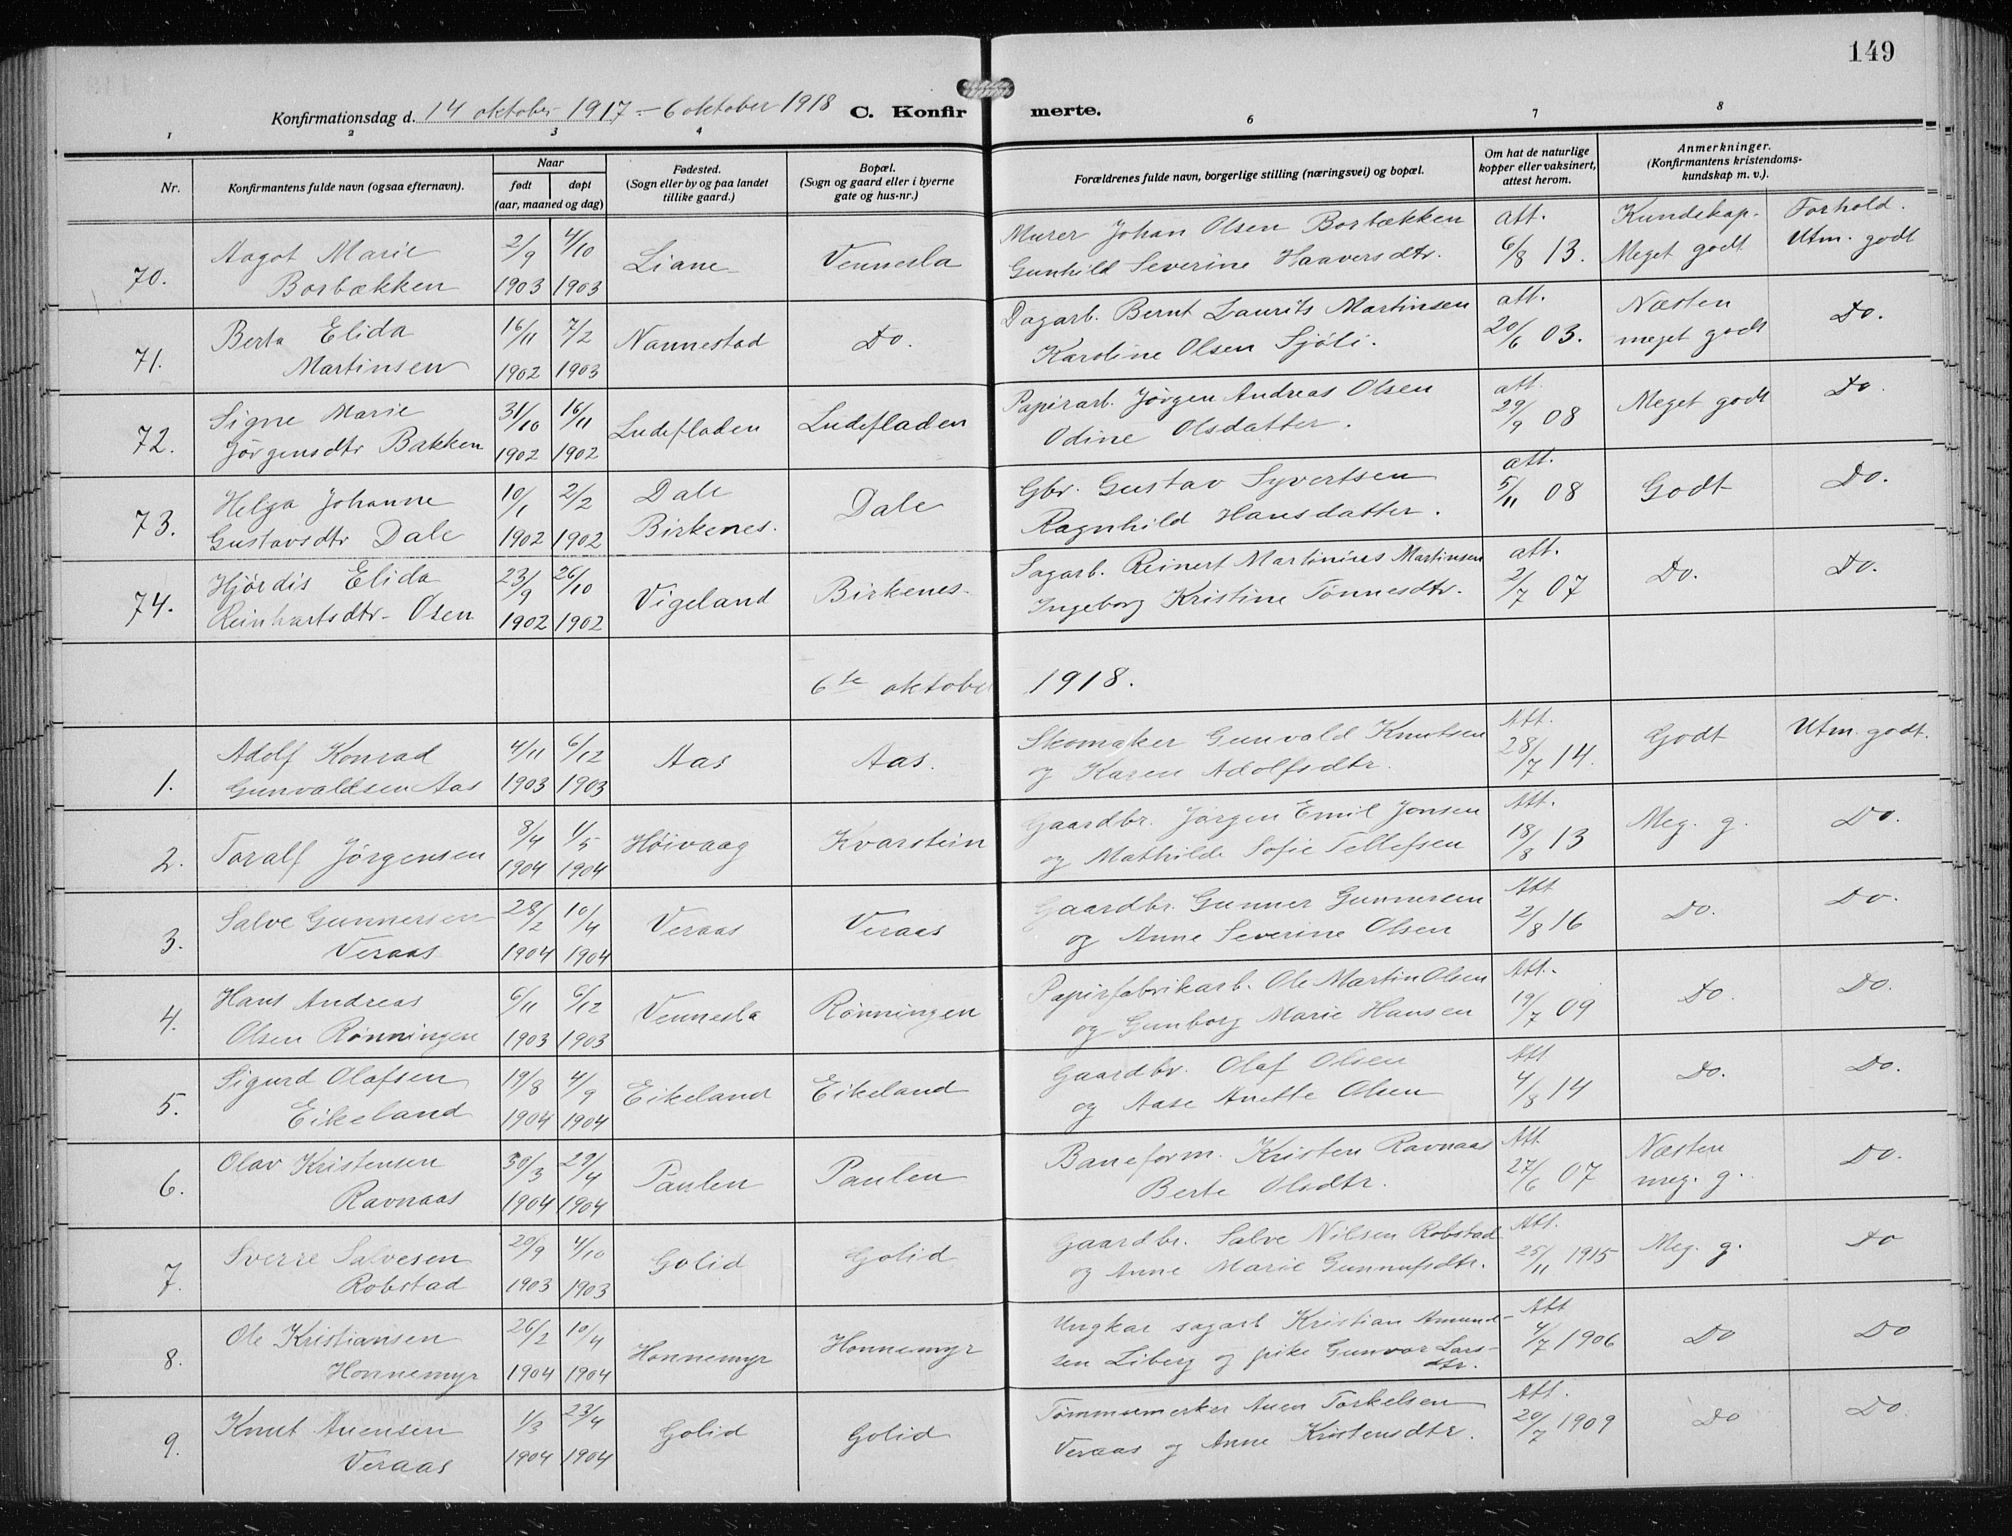 149
Konfirmationsdag d. 14 oktober 1917 – 6 oktober 1918 C. Konfirmerte.
1 2 3 4 6 7 8
Nr.
Konfirmantens fulde navn (ogsaa efternavn).
Naar
født døpt
(aar, maaned og dag)
Fødested.
(Sogn eller by og paa landet
tillike gaard.)
Bopæl.
(Sogn og gaard eller i byerne
gate og hus-nr.)
Forældrenes fulde navn, borgerlige stilling (næringsvei) og bopæl.
Om hat de naturlige
kopper eller vaksinert,
attest herom.
Anmerkninger.
(Konfirmantens kristendoms-
kundskap m. v.).
Kundskap. Forhold.
70. Aagot Marie Borbækken 2/9 1903 4/10 1903 Liane Vennesla
Murer Johan Olsen Borbækken
Gunhild Severine Haaversdtr. att. 6/8 13. Meget godt Utm. godt
71. Berta Elida Martinsen 16/11 1902 7/2 1903 Nannestad Do.
Dagarb. Bernt Laurits Martinsen
Karoline Olsen Sjøli. att. 20/6 03. Næsten meget godt Do.
72. Signe Marie Jørgensdtr Bakken 31/10 1902 16/11 1902 Ludefladen Ludefladen
Papirarb. Jørgen Andreas Olsen
Odine Olsdatter. att. 29/9 08 Meget godt Do.
73. Helga Johanne Gustavsdtr Dale 10/1 1902 2/2 1902 Dale Birkenes. Dale
Gbr. Gustav Syvertsen
Ragnhild Hansdatter. att. 5/11 08 Godt Do.
74. Hjørdis Elida Reinhartsdtr- Osen 23/9 1902 26/10 1902 Vigeland Birkenes-
Sagarb. Reinert Martinius Martinsen
Ingeborg Kristine Tønnesdtr. att. 2/7 07 Do. Do.
6te oktober 1918.
1. Adolf Konrad Gunvaldsen Aas 4/11 1903 6/12 1903 Aas Aas.
Skomaker Gunvald Knutsen
og Karen Adolfsdtr. Att. 28/7 14. Godt Utm. godt.
2. Toralf Jørgensen 8/4 1904 1/5 1904 Høivaag Kvarstein
Gaardbr. Jørgen Emil Jonsen
og Mathilde Sofie Tellefsen Att. 18/8 13 Meg. g. Do.
3. Salve Gunnersen Veraas 28/2 1904 10/4 1904 Veraas Veraas
Gaardbr. Gunner Gunnersen
og Anne Severine Olsen Att 2/8 16 Do. Do.
4. Hans Andreas Olsen Rønningen 6/11 1903 6/12 1903 Vennesla Rønningen
Papirfabrikarb. Ole Martin Olsen
og Gunborg Marie Hansen Att. 19/7 09 Do. Do.
5. Sigurd Olafsen Eikeland 19/8 1904 4/9 1904 Eikeland Eikeland
Gaardbr. Olaf Olsen
og Aase Anette Olsen Att 4/8 14 Do. Do.
6. Olav Kristensen Ravnaas 30/3 1904 29/4 1904 Paulen Paulen
Baneform. Kristen Ravnaas
Berte Olsdtr. Att 27/6 07 Næsten meg. g. Do.
7. Sverre Salvesen Robstad 20/9 1903 4/10 1903 Golid Golid
Gaardbr. Salve Nilsen Robstad
og Anne Marie Gunnufsdtr. Att. 25/11 1915 Meg. g. Do
8. Ole Kristiansen Honnemyr 26/2 1904 10/4 1904 Honnemyr Honnemyr
Ungkar sagarb Kristian Amund-
sen Liberg og pike Gunvor Lars-
dtr. Att 4/7 1906 Do Do
9. Knut Auensen Veraas 1/3 1904 23/4 1904 Golid Golid
Tømmermerker Auen Torkelsen
Veraas og Anne Kristensdtr. Att. 20/7 1909 Do Do.